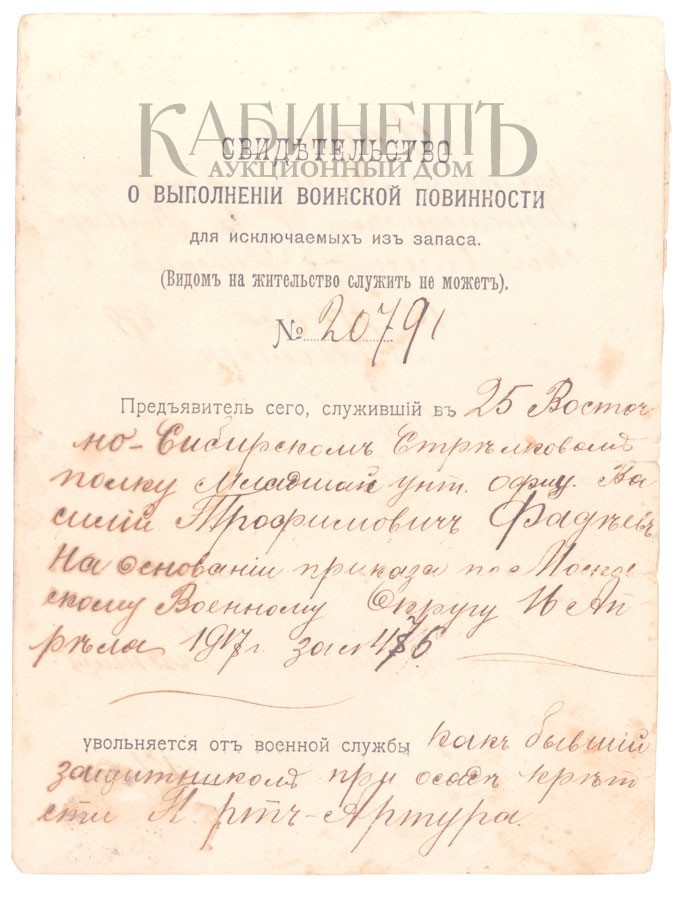 КАБИНЕТЪ
АУКЦИОННЫЙ ДОМ
СВИДѢТЕЛЬСТВО
О ВЫПОЛНЕНІИ ВОИНСКОЙ ПОВИННОСТИ
для исключаемыхъ изъ запаса.
(Видомъ на жительство служить не можетъ).
№ 20791
Предъявитель сего, служившій въ 25 Восточ-
но-Сибирскомъ Стрѣлковомъ
полку Младшій унт. офиц. Ва
силій Трофимовичъ Фадѣевъ
На основаніи приказа по Моско
скому Военному Округу 16 Ап-
рѣля 1917 г. за №
увольняется отъ военной службы какъ бывшій
защитникомъ при осадѣ крѣп
сти П ртъ-Артура.